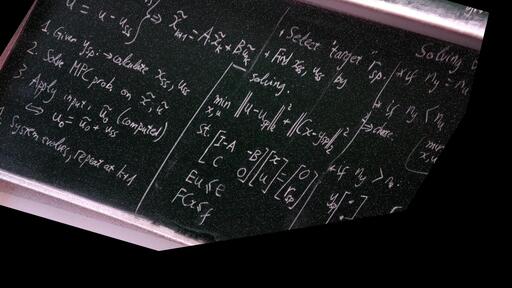 u = u - u_ss } ⇔ x̃_{k+1} = A x̃_k + B ũ_k
1. Given y_sp: → calculate x_ss, u_ss
2. Solve MPC prob. on x̃, ũ
3. Apply input, ũ_0 (computed)
⇔ u_0 = ũ_0 + u_ss
4. System evolves, repeat at k+1
• Select "target" r_sp.
+ find x_ss, u_ss by
solving.
min_{x,u} ||u - u_sp||² + ||Cx - y_sp||²
st. [I-A -B; C 0] [x; u] = [0; r_sp]
Eu ≤ e
FCx ≤ f
Solving
* if n_y = n_u
* if n_y < n_u
→ choose
min_{x,u}
* if n_y > n_u:
y_sp